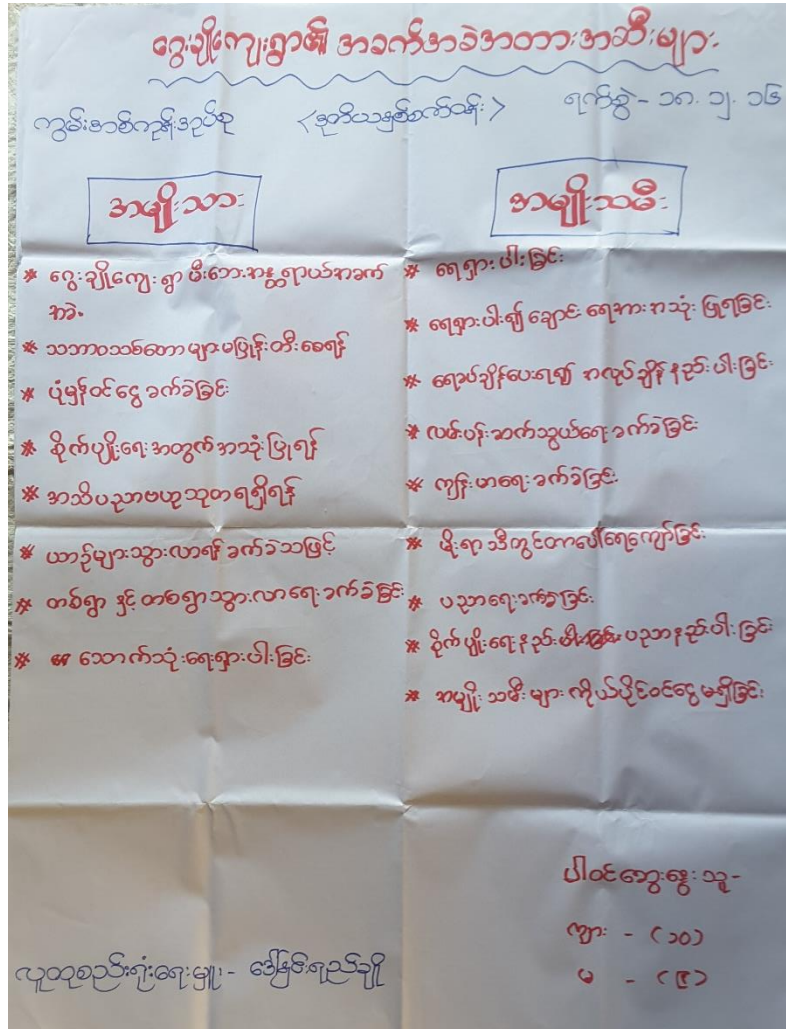 ငွေးချိုကျေးရွာ၏ အခက်အခဲအတားအဆီးများ
ကျွမ်းအစ်ကုန်းအုပ်စု <ဒုတိယနှစ်စက်ဝန်း> ရက်စွဲ - ၁၈. ၁၂. ၁၆
အမျိုးသား
* ငွေးချိုကျေးရွာ မီးဘေးအန္တရာယ်အခက်
အခဲ.
* သဘာဝသစ်တောများမပြုန်းတီးစေရန်
* ပုံမှန်ဝင်ငွေ ခက်ခဲခြင်း
* စိုက်ပျိုးရေးအတွက်အသုံးပြုရန်
* အသိပညာဗဟုသုတရရှိရန်
* ယာဉ်များသွားလာရန် ခက်ခဲသဖြင့်
* တစ်ရွာ နှင့် တစ်ရွာသွားလာရေးခက်ခဲခြင်း
* သောက်သုံးရေရှားပါးခြင်း
အမျိုးသမီး
* ရေရှားပါးခြင်း
* ရေရှားပါး၍ ချောင်းရေအားအသုံးပြုရခြင်း
* ရေခပ်ချိန်ပေးရ၍ အလုပ်ချိန်နည်းပါးခြင်း
* လမ်းပန်းဆက်သွယ်ရေးခက်ခဲခြင်း
* ကျန်းမာရေးခက်ခဲခြင်း
* မိုးရာသီတွင်တာပေါ်ရေကျော်ခြင်း
* ပညာရေးခက်ခဲခြင်း
* စိုက်ပျိုးရေးနည်း ပညာနည်းပါးခြင်း
* အမျိုးသမီးများကိုယ်ပိုင်ဝင်ငွေမရှိခြင်း
ပါဝင်ဆွေးနွေးသူ-
ကျား - (၁၀)
မ - (၉)
လူထုစည်းရုံးရေးမှူး - ဒေါ်နှင်းရည်ချို